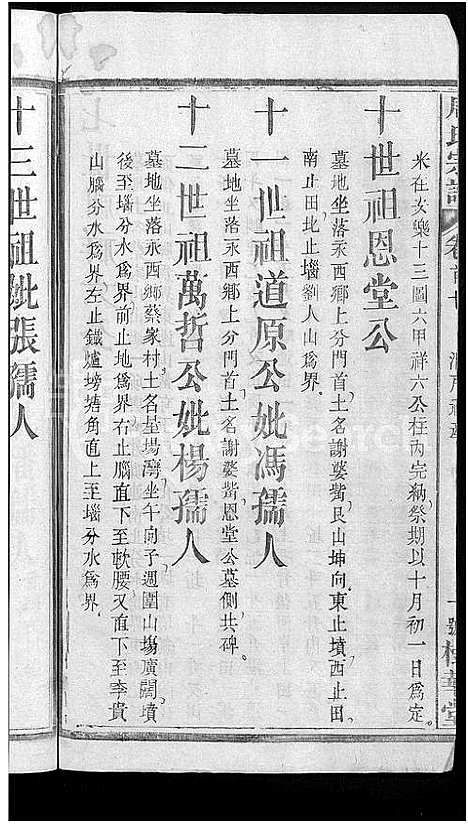 周氏宗譜
卷首
米在安樂十三圖六甲祥六公柱內完納祭期以十月初一日爲定
十世祖恩堂公
墓地坐落汞西鄉上分門首土名謝婆嘴艮山坤向東止墳西止田
南止田北止墦劉人山爲界
十一世祖道原公妣馮孺人
墓地坐落汞西鄉上分門首土名謝婆嘴恩堂公墓側共碑
十二世祖萬哲公妣楊孺人
墓地坐落汞西鄉蔡家村土名屋場灣坐午向子週圍山塲廣闊墳
後至墦分水爲界前止地爲界右止腦直下至軟腰又直下至李貴
山腦分水爲界左止鐵爐塝塘角直上至墦分水爲界
十三世祖妣張孺人